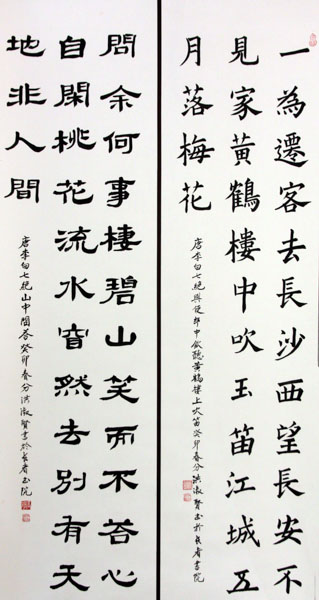 一為遷客去長沙西望長安不
見家黃鶴樓中吹玉笛江城五
月落梅花
唐李白七絕與史郎中飲聽黃鶴樓上吹笛癸卯春分洪淑賢書於長者書院
問余何事棲碧山笑而不荅心
自閑桃花流水窅然去別有天
地非人間
唐李白七絕山中問荅癸卯春分洪淑賢書於長者書院